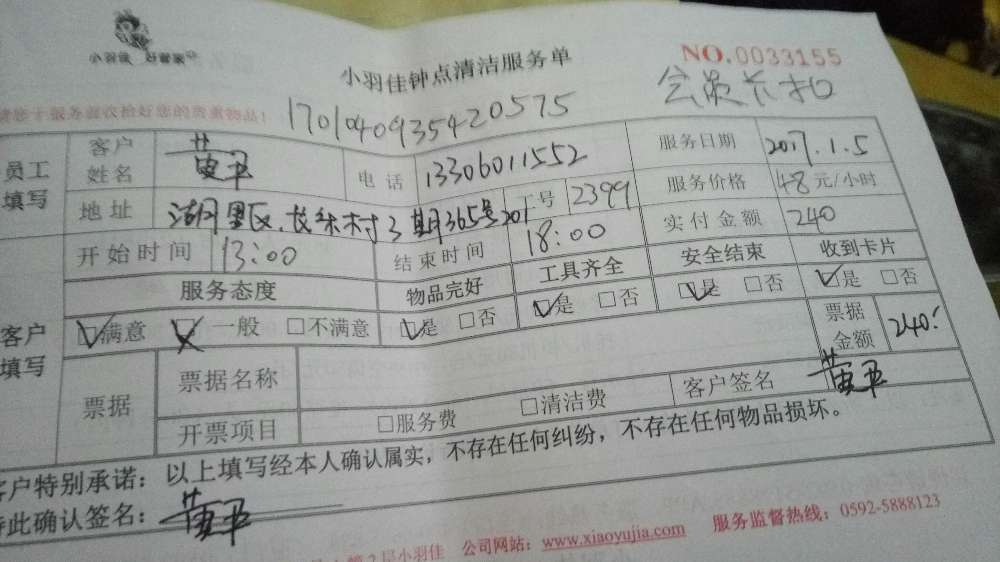 小羽佳 好管家
小羽佳钟点清洁服务单
NO.0033155
会员卡扣
请您于服务前收拾好您的贵重物品!
1701040935420575
员工填写 客户姓名 黄平 电话 13306011552 服务日期 2017.1.5
地址 湖里区、长乐村3期365号201 工号 2399 服务价格 48元/小时
开始时间 13:00 结束时间 18:00 实付金额 240
客户填写 服务态度 物品完好 工具齐全 安全结束 收到卡片
满意 一般 不满意 是 否 是 否 是 否 是 否
票据 票据名称 票据金额 240.
开票项目 服务费 清洁费 客户签名 黄平
客户特别承诺:以上填写经本人确认属实,不存在任何纠纷,不存在任何物品损坏。
特此确认签名: 黄平
2层小羽佳 公司网站:www.xiaoyujia.com 服务监督热线:0592-5888123